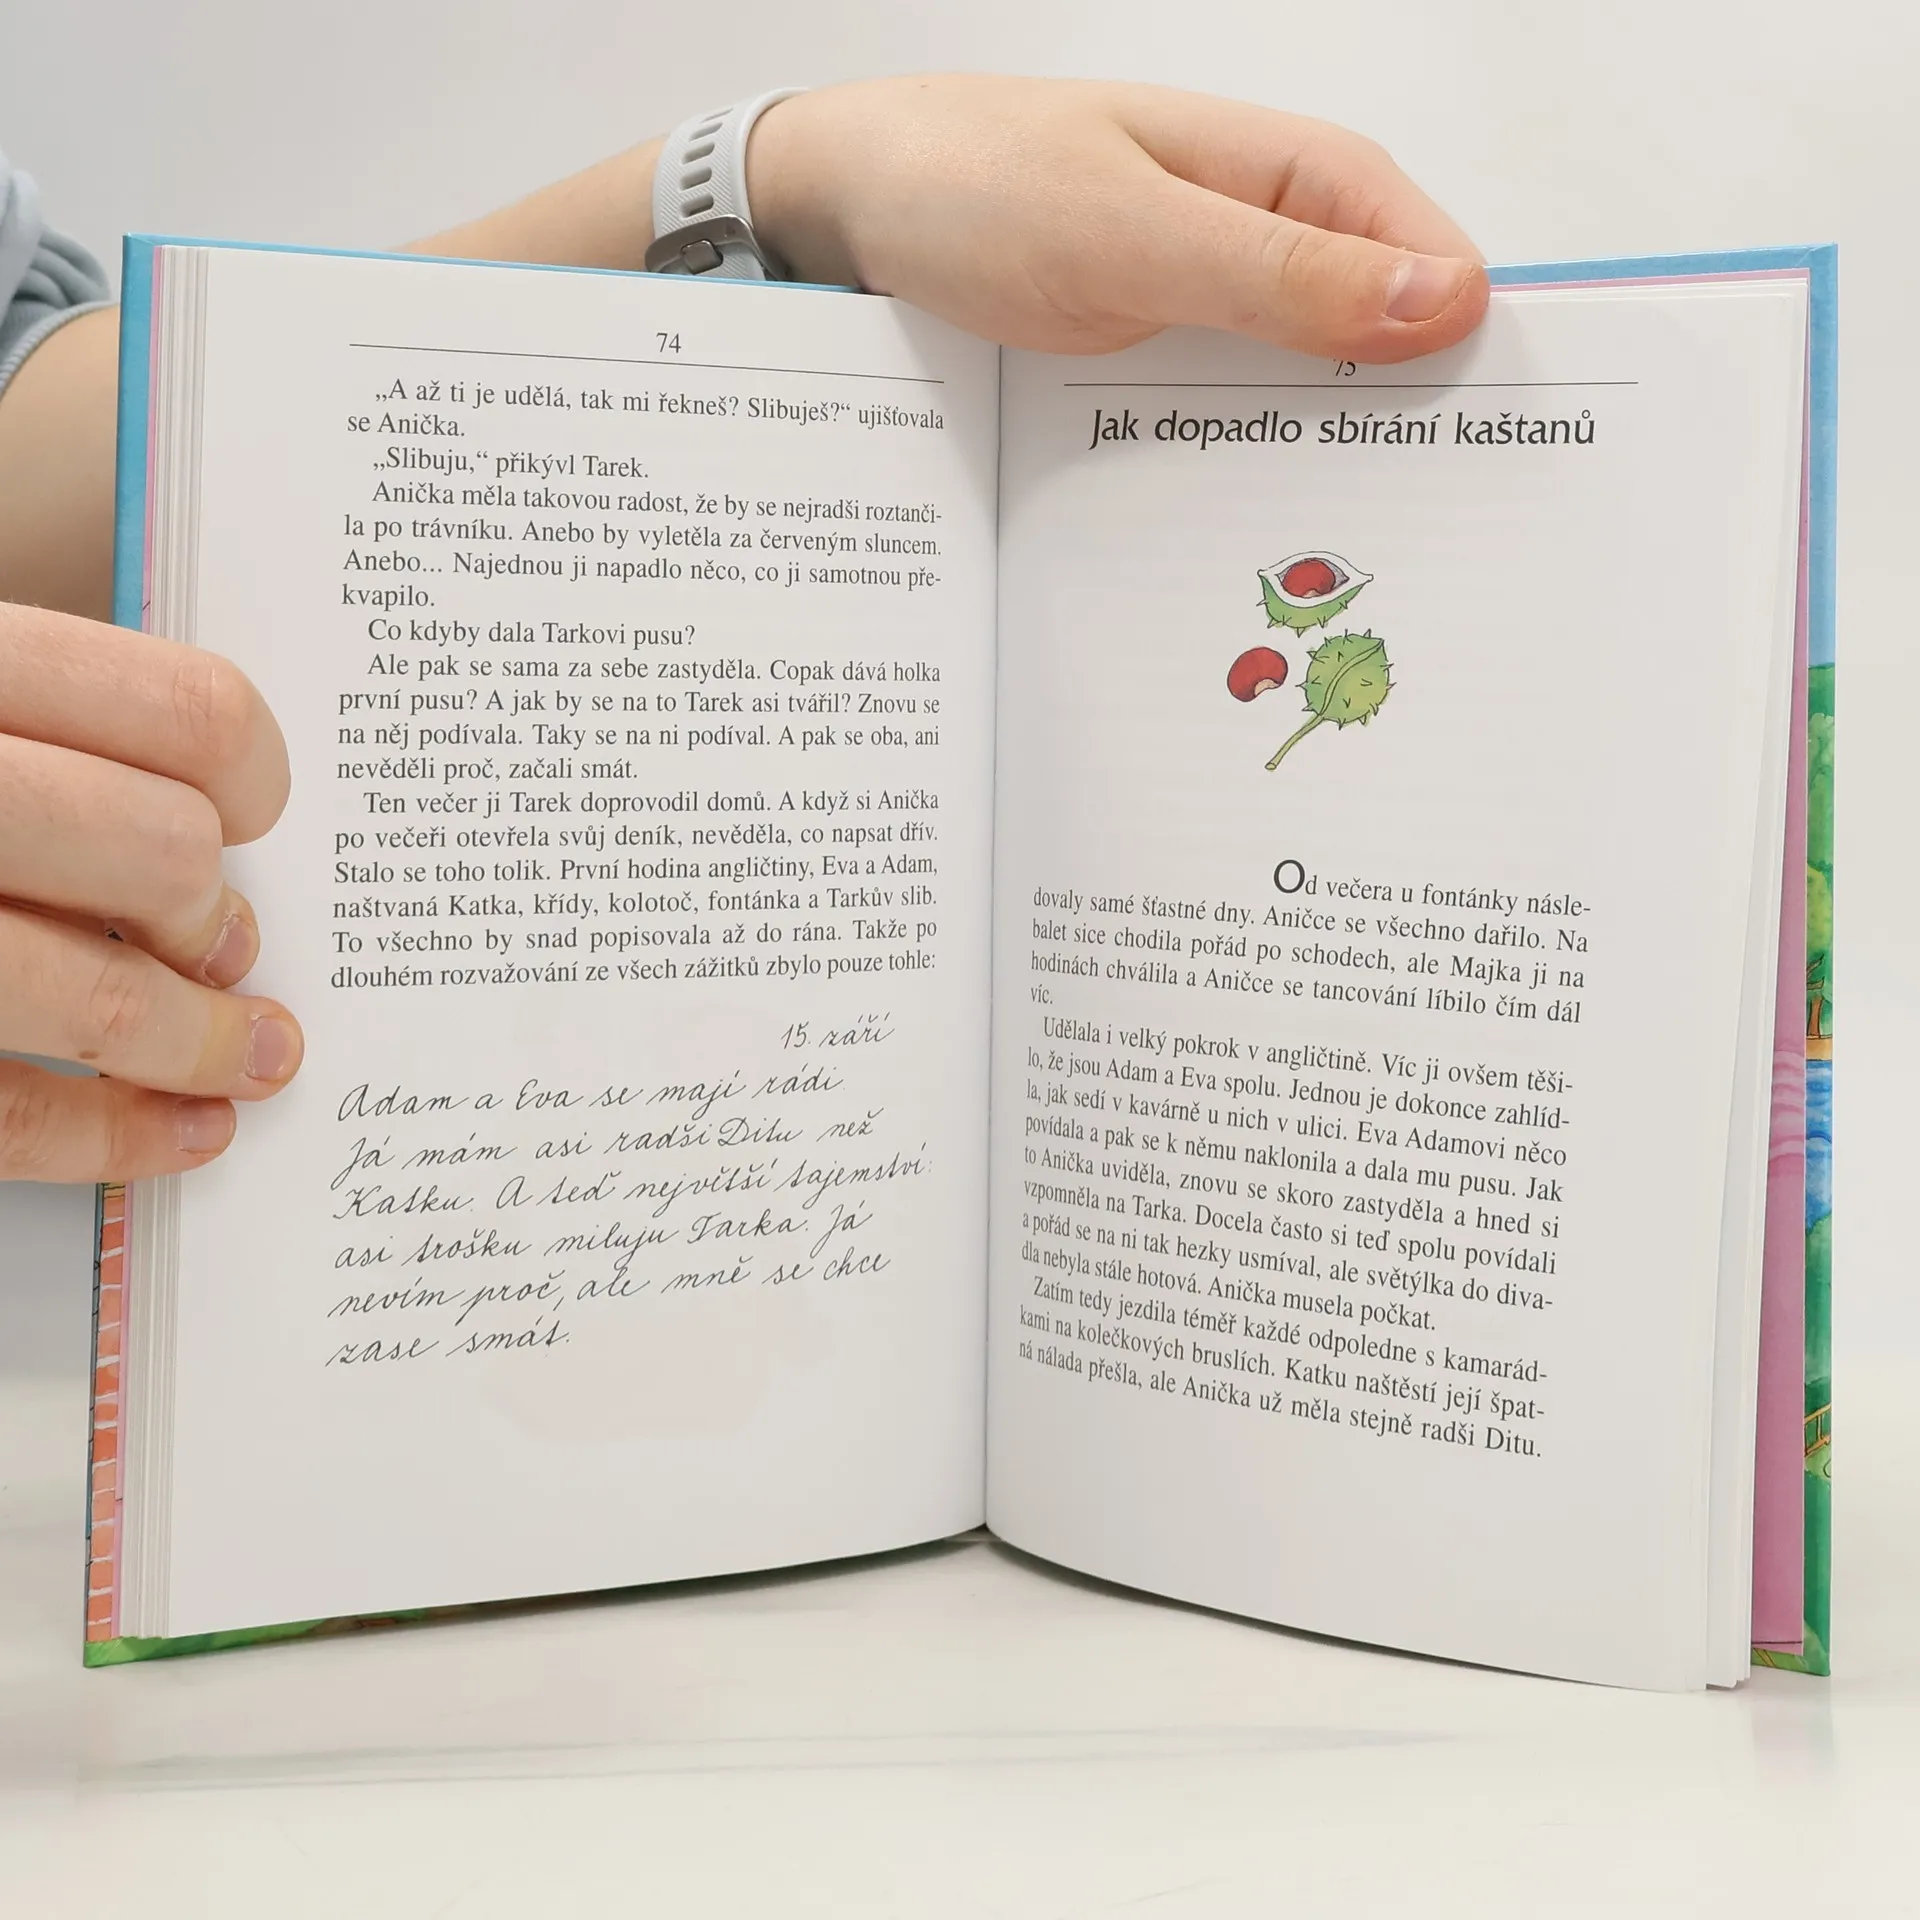 74
„A až ti je udělá, tak mi řekneš? Slibuješ?“ ujišťovala
se Anička.
„Slibuju,“ přikývl Tarek.
Anička měla takovou radost, že by se nejradši roztanči-
la po trávníku. Anebo by vyletěla za červeným sluncem.
Anebo... Najednou ji napadlo něco, co ji samotnou pře-
kvapilo.
Co kdyby dala Tarkovi pusu?
Ale pak se sama za sebe zastyděla. Copak dává holka
první pusu? A jak by se na to Tarek asi tvářil? Znovu se
na něj podívala. Taky se na ni podíval. A pak se oba, ani
nevěděli proč, začali smát.
Ten večer ji Tarek doprovodil domů. A když si Anička
po večeři otevřela svůj deník, nevěděla, co napsat dřív.
Stalo se toho tolik. První hodina angličtiny, Eva a Adam,
naštvaná Katka, křídy, kolotoč, fontánka a Tarkův slib.
To všechno by snad popisovala až do rána. Takže po
dlouhém rozvažování ze všech zážitků zbylo pouze tohle:
15. září
Adam a Eva se mají rádi.
Já mám asi radši Ditu než
Katku. A teď největší tajemství:
asi trošku miluju Tarka. Já
nevím proč, ale mně se chce
zase smát.
75
Jak dopadlo sbírání kaštanů
Od večera u fontánky násle-
dovaly samé šťastné dny. Aničce se všechno dařilo. Na
balet sice chodila pořád po schodech, ale Majka ji na
hodinách chválila a Aničce se tancování líbilo čím dál
víc.
Udělala i velký pokrok v angličtině. Víc ji ovšem těši-
lo, že jsou Adam a Eva spolu. Jednou je dokonce zahlíd-
la, jak sedí v kavárně u nich v ulici. Eva Adamovi něco
povídala a pak se k němu naklonila a dala mu pusu. Jak
to Anička uviděla, znovu se skoro zastyděla a hned si
vzpomněla na Tarka. Docela často si teď spolu povídali
a pořád se na ni tak hezky usmíval, ale světýlka do diva-
dla nebyla stále hotová. Anička musela počkat.
Zatím tedy jezdila téměř každé odpoledne s kamarád-
kami na kolečkových bruslích. Katku naštěstí její špat-
ná nálada přešla, ale Anička už měla stejně radši Ditu.